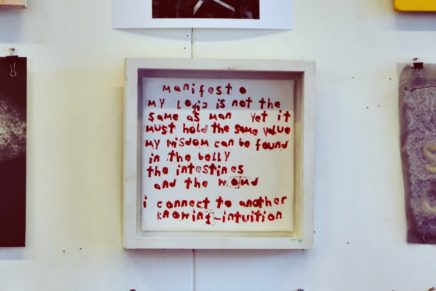 manifest o
my logic is not the
same as man yet it
must hold the same value
my wisdom can be found
in the belly
the intestines
and the womb
i connect to another
knowing-intuition